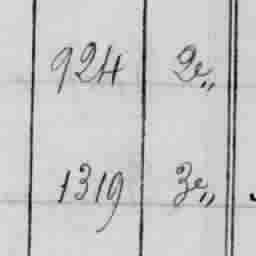 924 2e„
1319 3e„